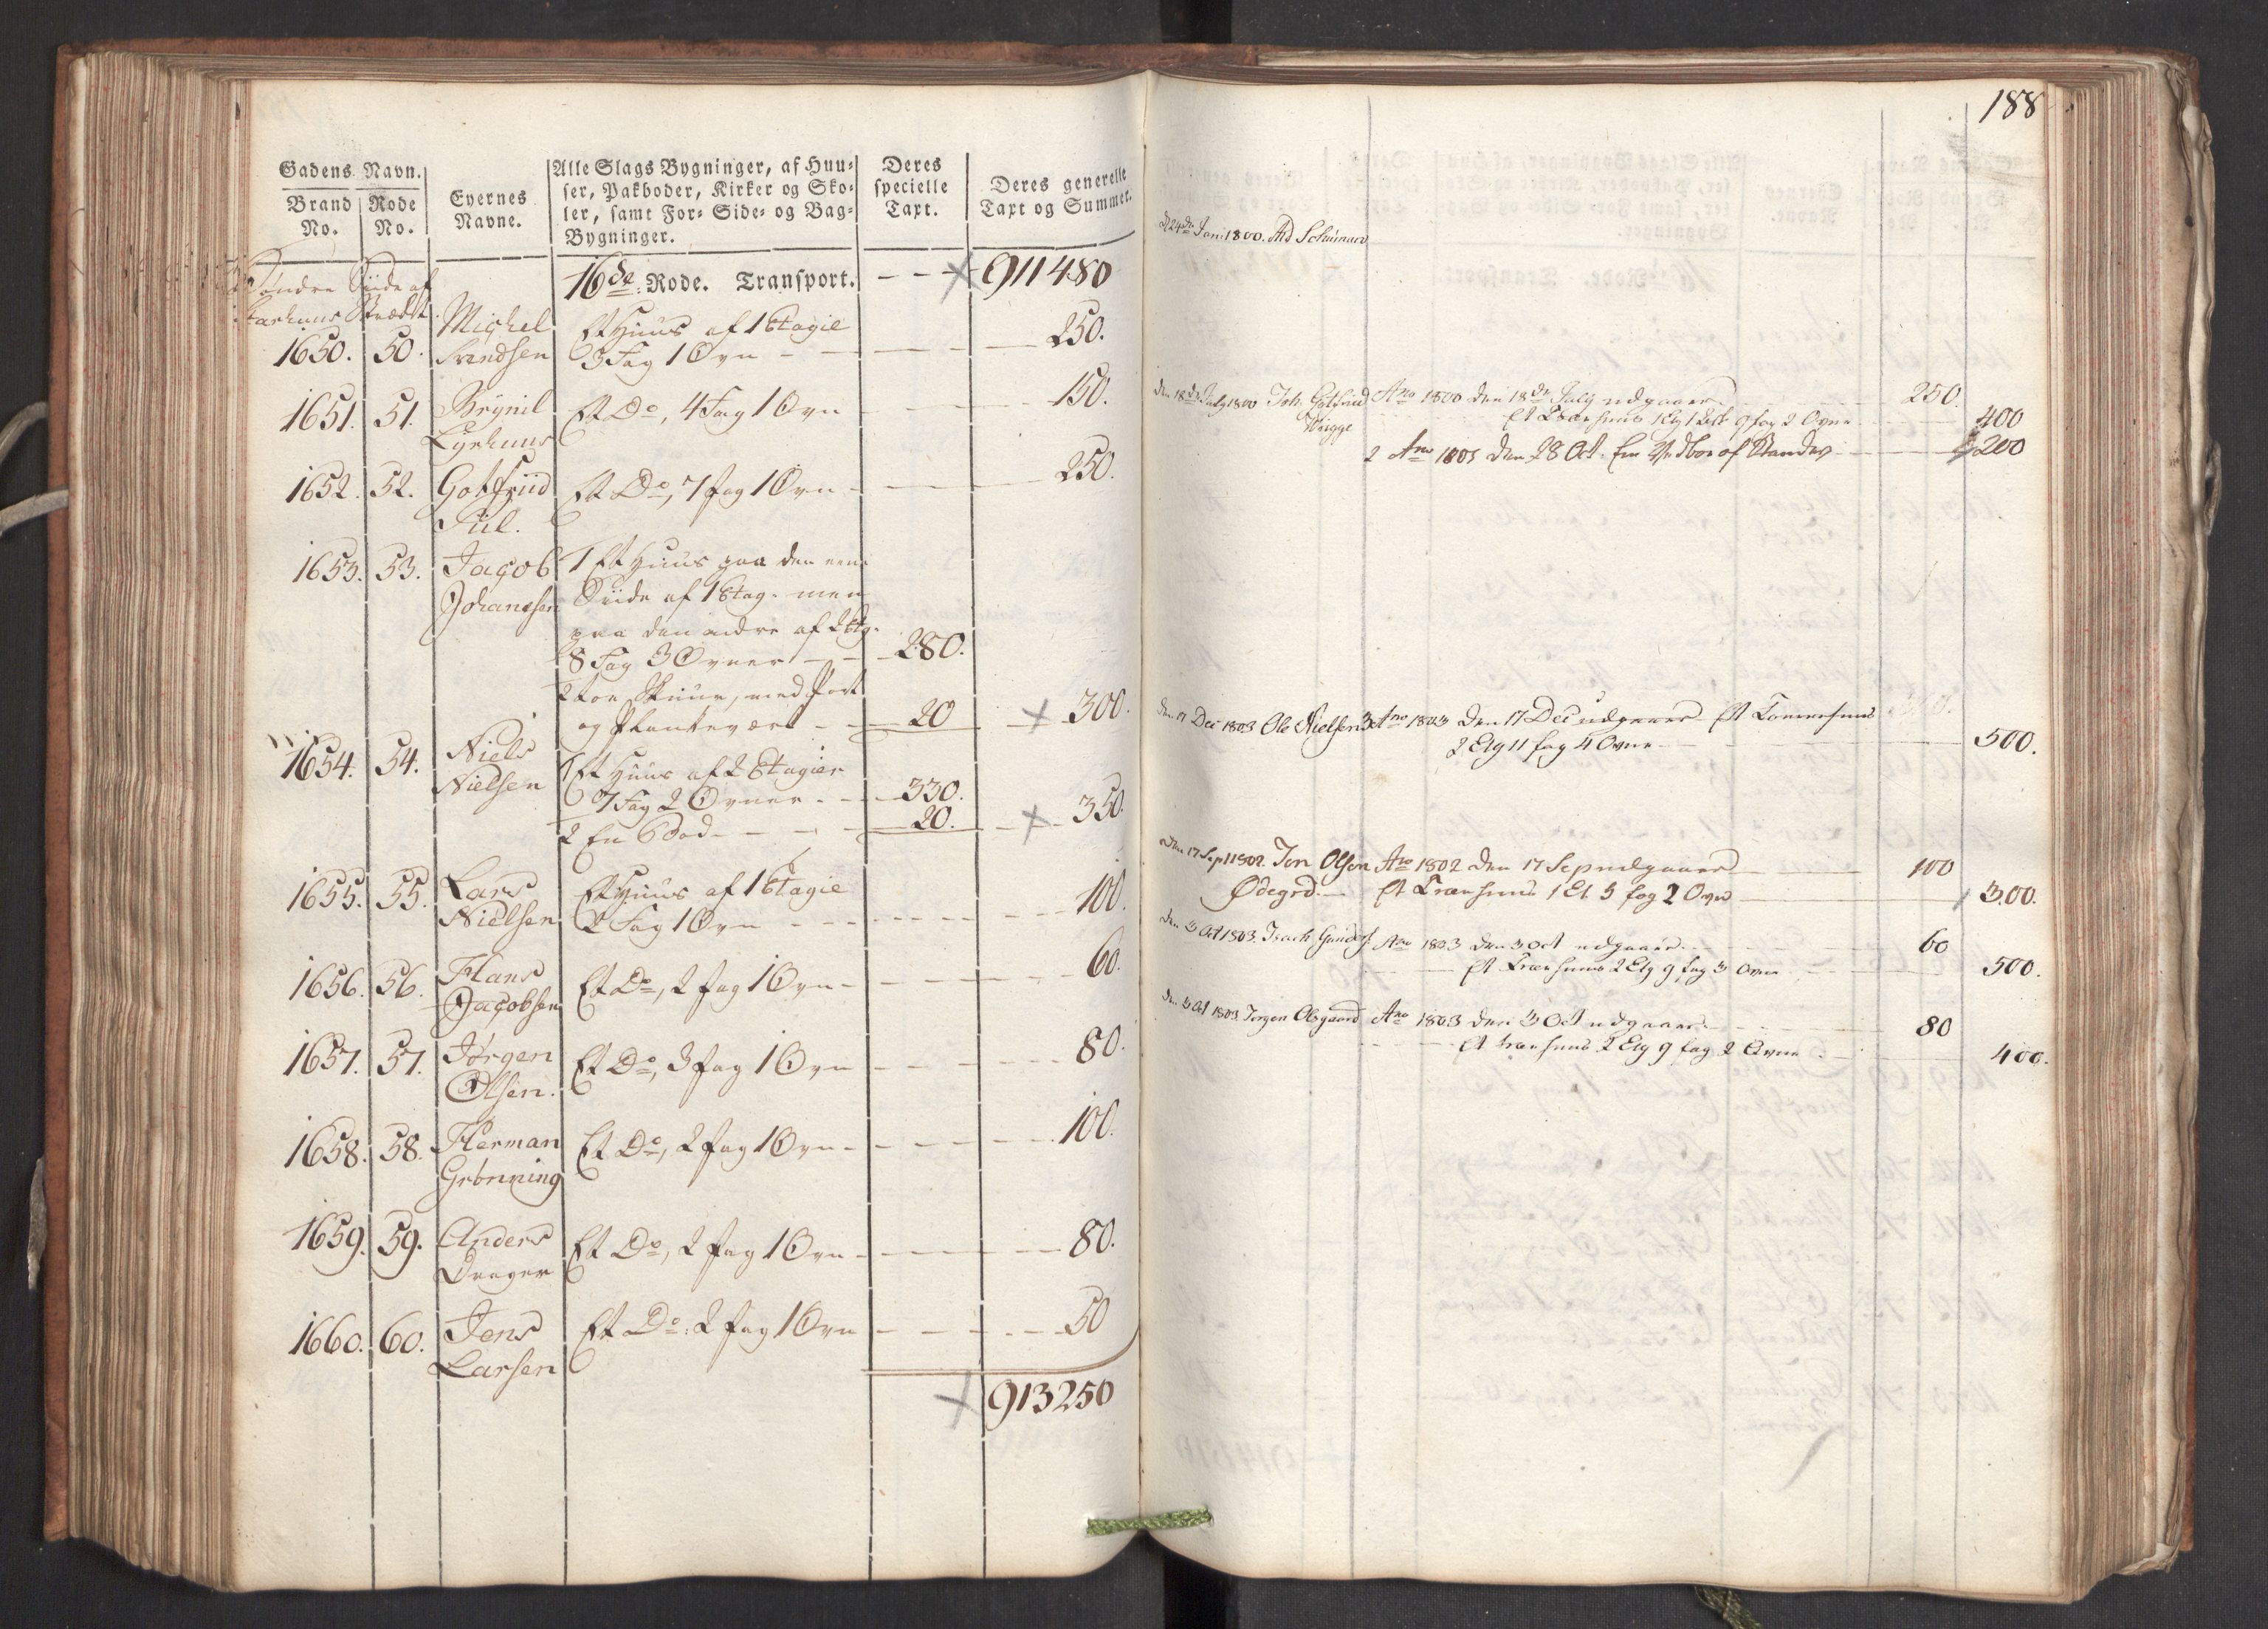 Gadens Navn.
Brand No.
Rode No.
Eyernes Navne.
Alle Slags Bygninger, af Huu-
ser, Pakboder, Kirker og Sko-
ler, samt For- Side- og Bag-
Bygninger.
Deres
specielle
Taxt.
Deres generelle
Taxt og Summer.
Søndre Siide af
16de Rode. Transport. 911480
Michel Et Huus af 1 Etagie
1650. 50. Svendsen 3 Fag 1 Ovn 250.
1651. 51. Brynil Et Do, 4 Fag 1 Ovn 150.
Lyrhuus
1652. 52. Gotfriid Et Do, 7 fag 1 Ovn 250.
Piil.
1653. 53. Jacob 1 Et Huus paa den eene
Johansen Siide af 1 Etag. men
paa den andre af 2 Etg.
8 Fag 3 Ovner 280.
2 Toe Skuur, med Port
og Plankeværk 20 300.
1654. 54. Niels
Nielsen 1 Et Huus af 2 Etagier
7 Fag 2 Ovner 330.
2 En Bod 20. 350.
1655. 55. Lars Et Huus af 1 Etagie
Nielsen 2 Fag 1 Ovn 100.
1656. 56. Hans Et Do, 2 fag 1 Ovn 60.
Jacobsen
1657. 57. Jørgen Et Do, 3 fag 1 Ovn 80.
Olsen.
1658. 58. Herman Et Do, 2 fag 1 Ovn 100.
Grönning
1659. 59. Anders Et Do, 2 fag 1 Ovn 80.
Drager
1660. 60. Jens Et Do: 2 fag 1 Ovn 50
Larsen
913250
188
d 24de Jan: 1800. Ad Schuman
den 18de July 1800 Joh. Gotfried Ano 1800 den 18de July udgaaer 250.
Wigge Et Træehuus 1 Etg 9 fag 2 Ovne 400
2 Ano 1805 den 28 Oct. En Vedboe af Stander 200
den 17 Dec 1803 Ole Nielsen Ano 1803 den 17 Dec udgaaer Et Tømerhuus
2 Etg 11 fag 4 Ovne 500.
den 17 Sept 1802. Jon Olsen Ano 1802 den 17 Sep udgaaer 100
Ødegrd. Et Træehuus 1 Et. 5 fag 2 Ovne 300.
den 3 Oct 1803. Isach Gunders. Ano 1803 den 3 Oct udgaaer 60
Et Træehuus 2 Etg 9 fag 3 Ovne 500.
den 3 Oct 1803 Jørgen Olsgaard Ano 1803 den 3 Oct udgaaer 80
Et træehuus 2 Etg 9 fag 2 Ovne 400.